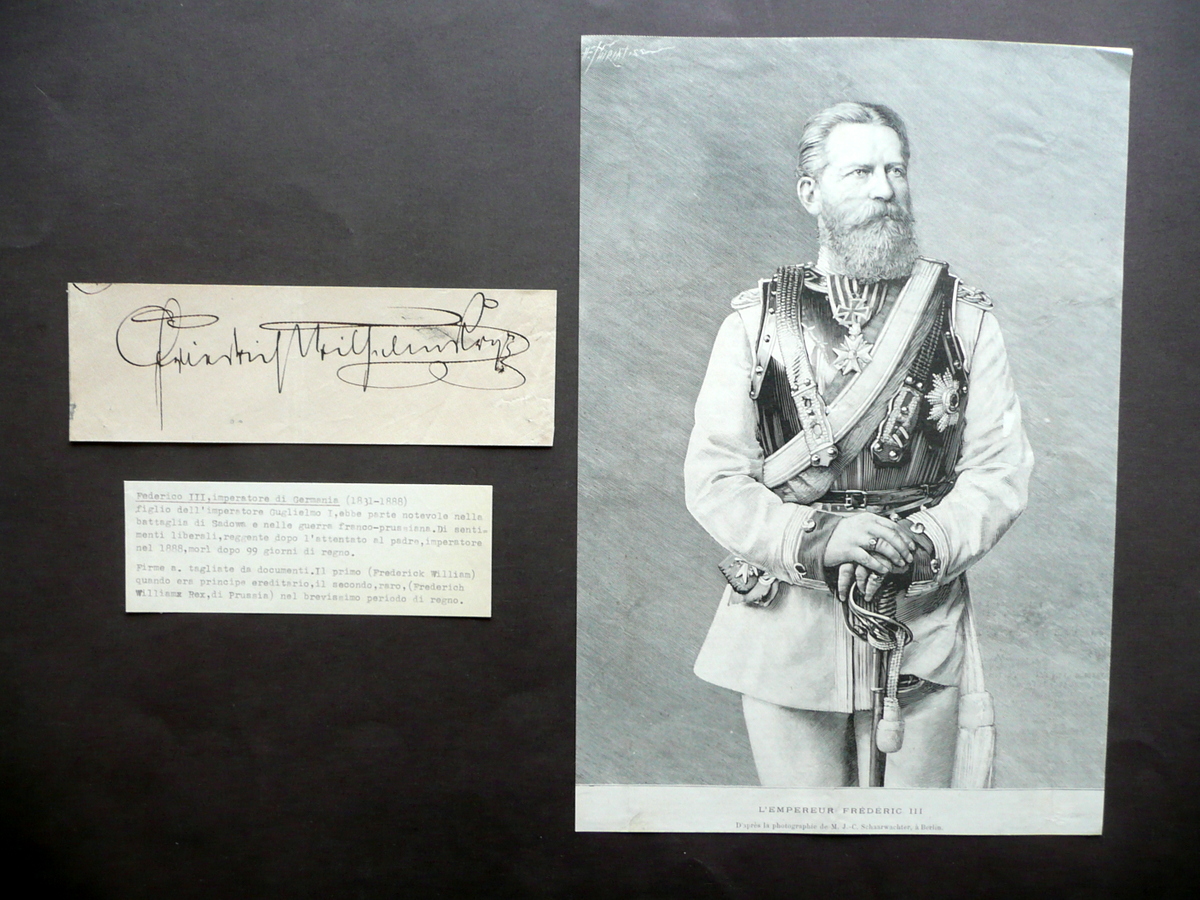 Friedrich Wilhelm Krpz
Federico III, imperatore di Germania (1831-1888)
figlio dell'imperatore Guglielmo I, ebbe parte notevole nella
battaglia di Sadowa e nelle guerre franco-prussiana. Di senti-
menti liberali, reggente dopo l'attentato al padre, imperatore
nel 1888, morì dopo 99 giorni di regno.
Firme a. tagliate da documenti. Il primo (Frederick William)
quando era principe ereditario, il secondo, raro, (Frederich
Williamx Rex, di Prussia) nel brevissimo periodo di regno.
L'EMPEREUR FRÉDÉRIC III
D'après la photographie de M. J.-C. Schaarwachter, à Berlin.